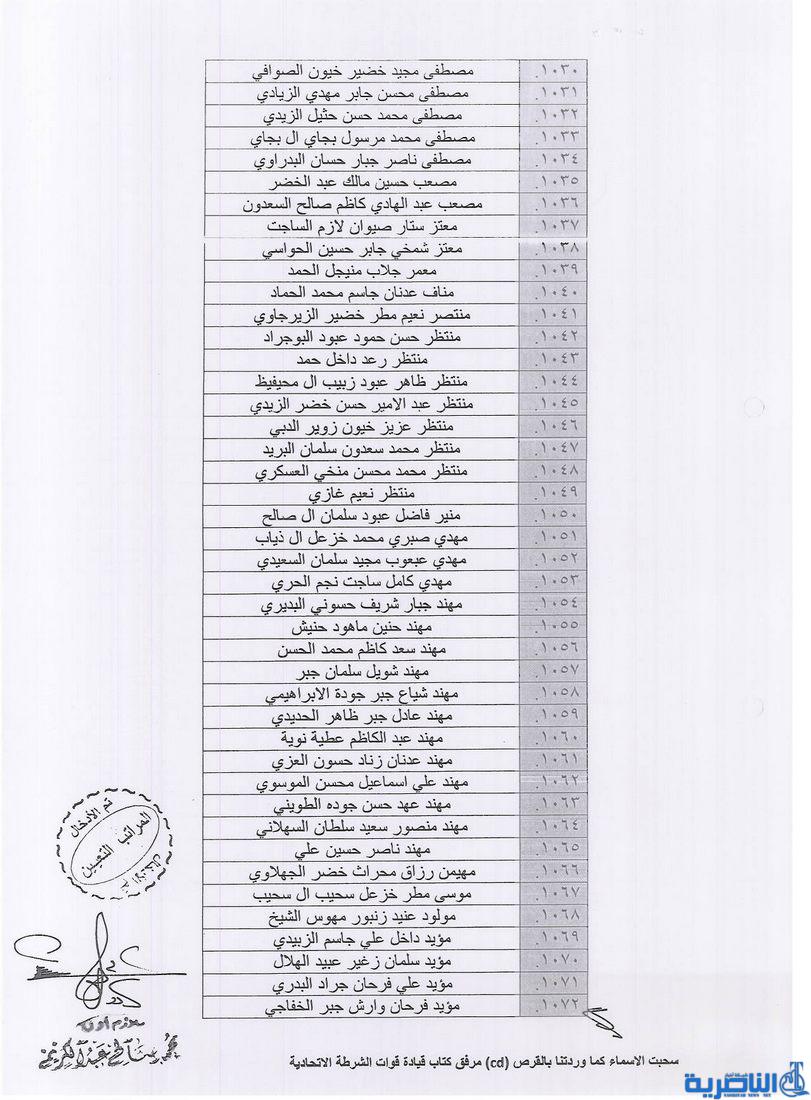 ١٠٣٠. مصطفى مجيد خضير خيون الصوافي
١٠٣١. مصطفى محسن جابر مهدي الزيادي
١٠٣٢. مصطفى محمد حسن حثيل الزيدي
١٠٣٣. مصطفى محمد مرسول بجاي ال بجاي
١٠٣٤. مصطفى ناصر جبار حسان البدراوي
١٠٣٥. مصعب حسين مالك عبد الخضر
١٠٣٦. مصعب عبد الهادي كاظم صالح السعدون
١٠٣٧. معتز ستار صيوان لازم الساجت
١٠٣٨. معتز شمخي جابر حسين الحواسي
١٠٣٩. معمر جلاب منيجل الحمد
١٠٤٠. مناف عدنان جاسم محمد الحماد
١٠٤١. منتصر نعيم مطر خضير الزيرجاوي
١٠٤٢. منتظر حسن حمود عبود البوجراد
١٠٤٣. منتظر رعد داخل حمد
١٠٤٤. منتظر ظاهر عبود زبيب ال محيفيظ
١٠٤٥. منتظر عبد الامير حسن خضر الزيدي
١٠٤٦. منتظر عزيز خيون زوير الدبي
١٠٤٧. منتظر محمد سعدون سلمان البريد
١٠٤٨. منتظر محمد محسن منخي العسكري
١٠٤٩. منتظر نعيم غازي
١٠٥٠. منير فاضل عبود سلمان ال صالح
١٠٥١. مهدي صبري محمد خزعل ال ذياب
١٠٥٢. مهدي عبعوب مجيد سلمان السعيدي
١٠٥٣. مهدي كامل ساجت نجم الحري
١٠٥٤. مهند جبار شريف حسوني البديري
١٠٥٥. مهند حنين ماهود حنيش
١٠٥٦. مهند سعد كاظم محمد الحسن
١٠٥٧. مهند شويل سلمان جبر
١٠٥٨. مهند شياع جبر جودة الابراهيمي
١٠٥٩. مهند عادل جبر ظاهر الحديدي
١٠٦٠. مهند عبد الكاظم عطية نوية
١٠٦١. مهند عدنان زناد حسون العزي
١٠٦٢. مهند علي اسماعيل محسن الموسوي
١٠٦٣. مهند عهد حسن جوده الطويني
١٠٦٤. مهند منصور سعيد سلطان السهلاني
١٠٦٥. مهند ناصر حسين علي
١٠٦٦. مهيمن رزاق محراث خضر الجهلاوي
١٠٦٧. موسى مطر خزعل سحيب ال سحيب
١٠٦٨. مولود عنيد زنبور مهوس الشيخ
١٠٦٩. مؤيد داخل علي جاسم الزبيدي
١٠٧٠. مؤيد سلمان زغير عبيد الهلال
١٠٧١. مؤيد علي فرحان جراد البدري
١٠٧٢. مؤيد فرحان وارش جبر الخفاجي
تم الادخال
المراتب التعيين
تم الادخال
ملازم اول
سحبت الاسماء كما وردتنا بالقرص (cd) مرفق كتاب قيادة قوات الشرطة الاتحادية
الناصرية